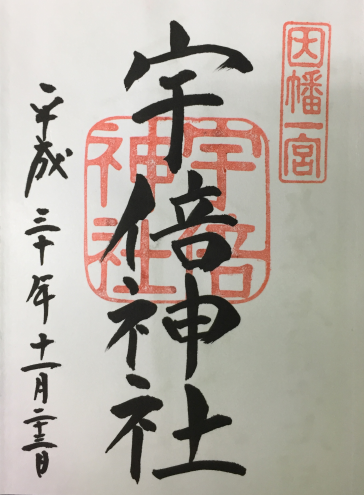 因幡一宮
宇倍神社
宇倍神社
平成三十年十一月二十三日